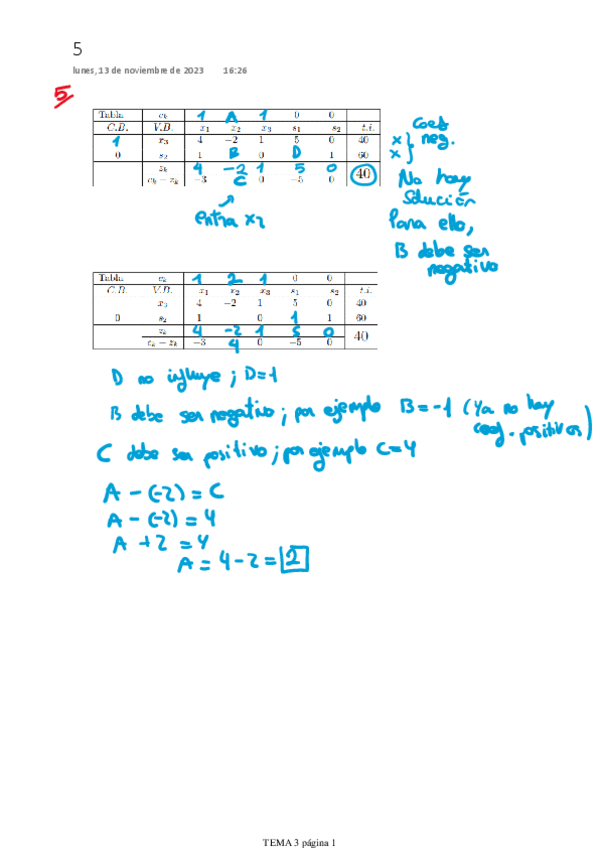 5
lunes, 13 de noviembre de 2023 16:26
5
Tabla c_k 1 A 1 0 0
C.B. V.B. x₁ x₂ x₃ s₁ s₂ t.i.
1 x₃ 4 −2 1 5 0 40
0 s₂ 1 B 0 D 1 60
z_k 4 -2 1 5 0 40
c_k − z_k −3 C 0 −5 0
x } Coef
x } neg.
No hay
solución
Para ello,
B debe ser
negativo
entra x2
Tabla c_k 1 2 1 0 0
C.B. V.B. x₁ x₂ x₃ s₁ s₂ t.i.
x₃ 4 −2 1 5 0 40
0 s₂ 1 0 1 1 60
z_k 4 -2 1 5 0 40
c_k − z_k −3 4 0 −5 0
D no influye ; D=1
B debe ser negativo ; por ejemplo B = -1 (Ya no hay
coef. positivos)
C debe ser positivo ; por ejemplo C=4
A - (-2) = C
A - (-2) = 4
A + 2 = 4
A = 4 - 2 = 2
TEMA 3 página 1